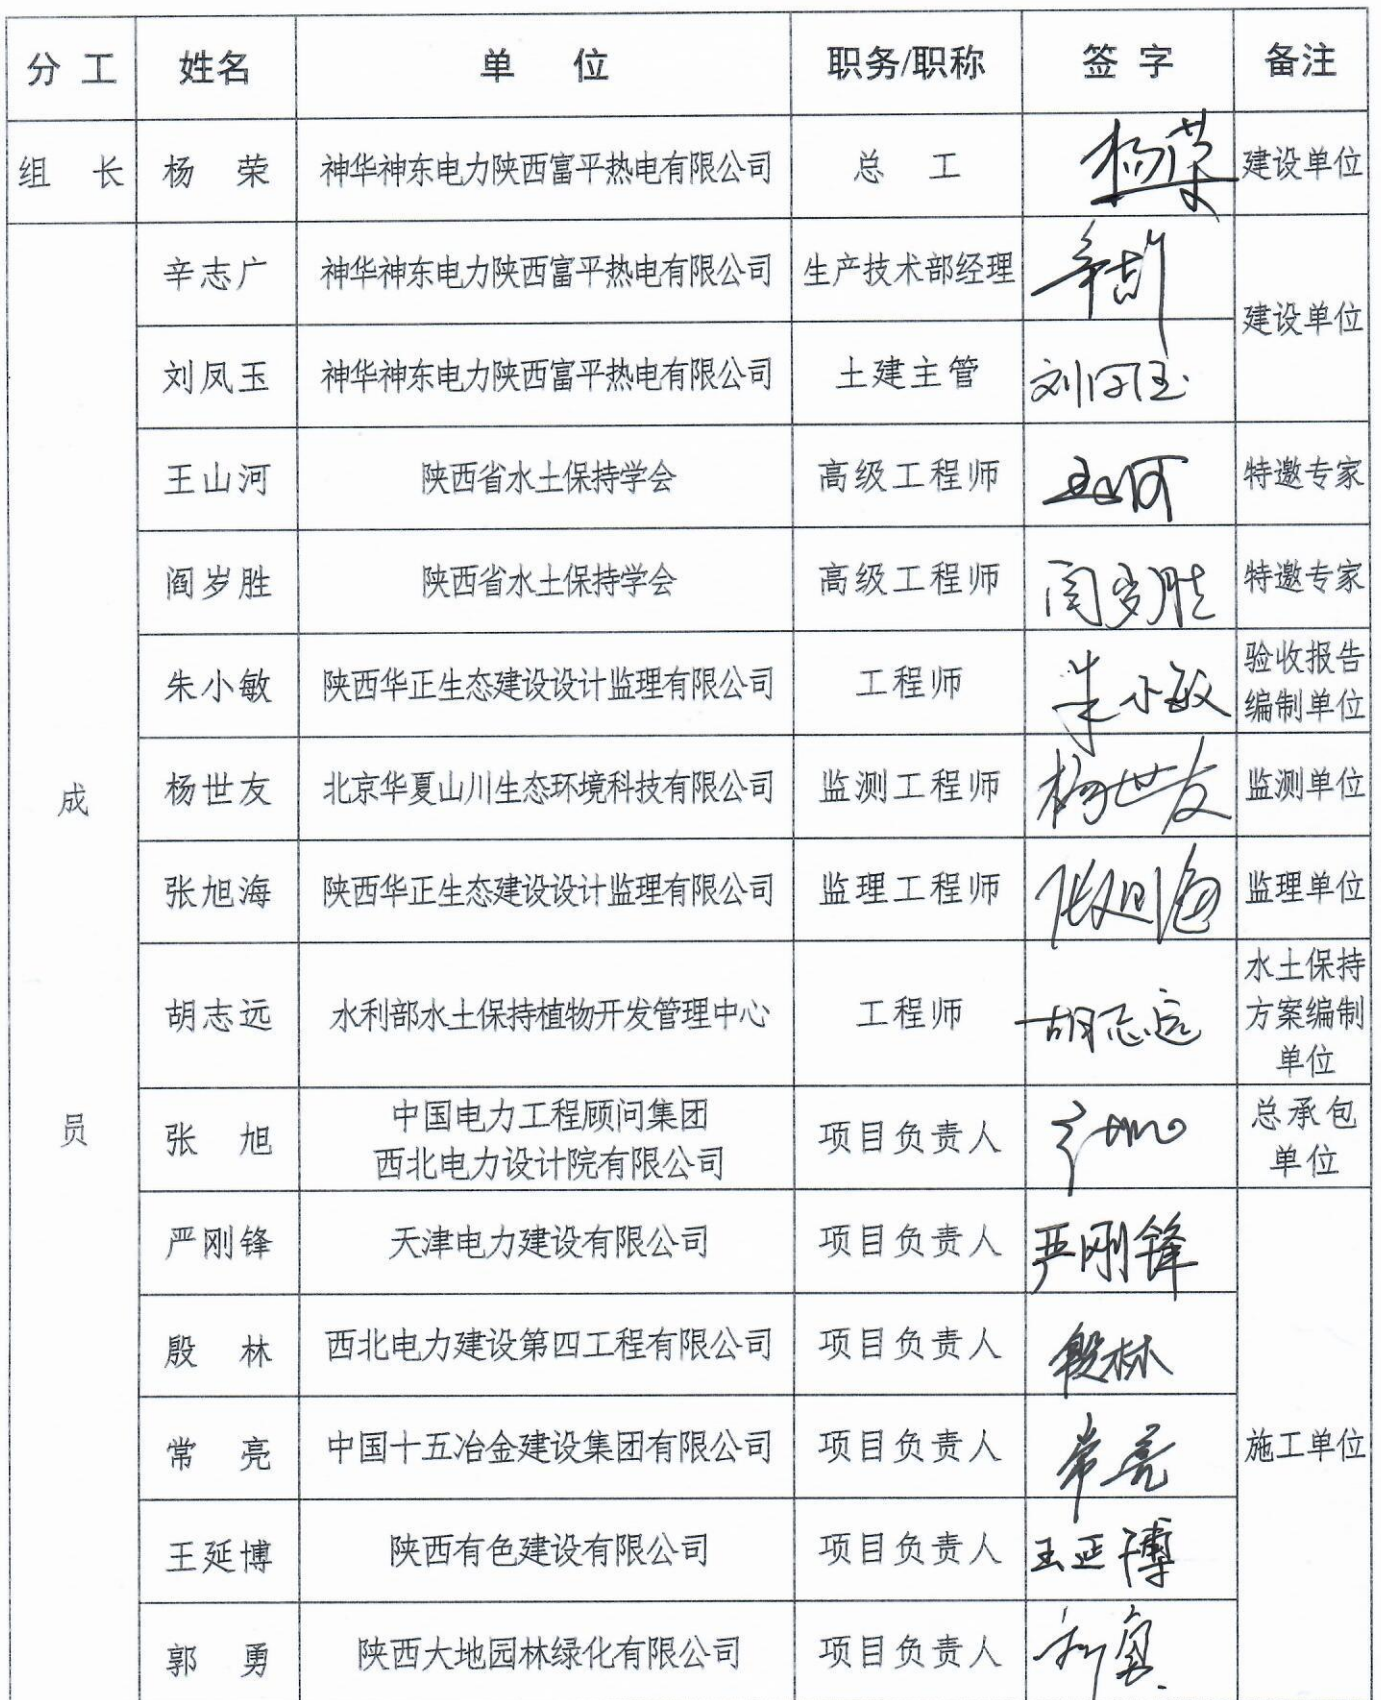 分 工 姓名 单 位 职务/职称 签 字 备注
组 长 杨 荣 神华神东电力陕西富平热电有限公司 总 工 杨荣 建设单位
成 员
辛志广 神华神东电力陕西富平热电有限公司 生产技术部经理 建设单位
刘凤玉 神华神东电力陕西富平热电有限公司 土建主管 刘凤玉
王山河 陕西省水土保持学会 高级工程师 王山河 特邀专家
阎岁胜 陕西省水土保持学会 高级工程师 闫岁胜 特邀专家
朱小敏 陕西华正生态建设设计监理有限公司 工程师 朱小敏 验收报告
编制单位
杨世友 北京华夏山川生态环境科技有限公司 监测工程师 杨世友 监测单位
张旭海 陕西华正生态建设设计监理有限公司 监理工程师 张旭海 监理单位
胡志远 水利部水土保持植物开发管理中心 工程师 胡志远 水土保持
方案编制
单位
张 旭 中国电力工程顾问集团
西北电力设计院有限公司 项目负责人 总承包
单位
严刚锋 天津电力建设有限公司 项目负责人 严刚锋 施工单位
殷 林 西北电力建设第四工程有限公司 项目负责人 殷林
常 亮 中国十五冶金建设集团有限公司 项目负责人 常亮
王延博 陕西有色建设有限公司 项目负责人 王延博
郭 勇 陕西大地园林绿化有限公司 项目负责人